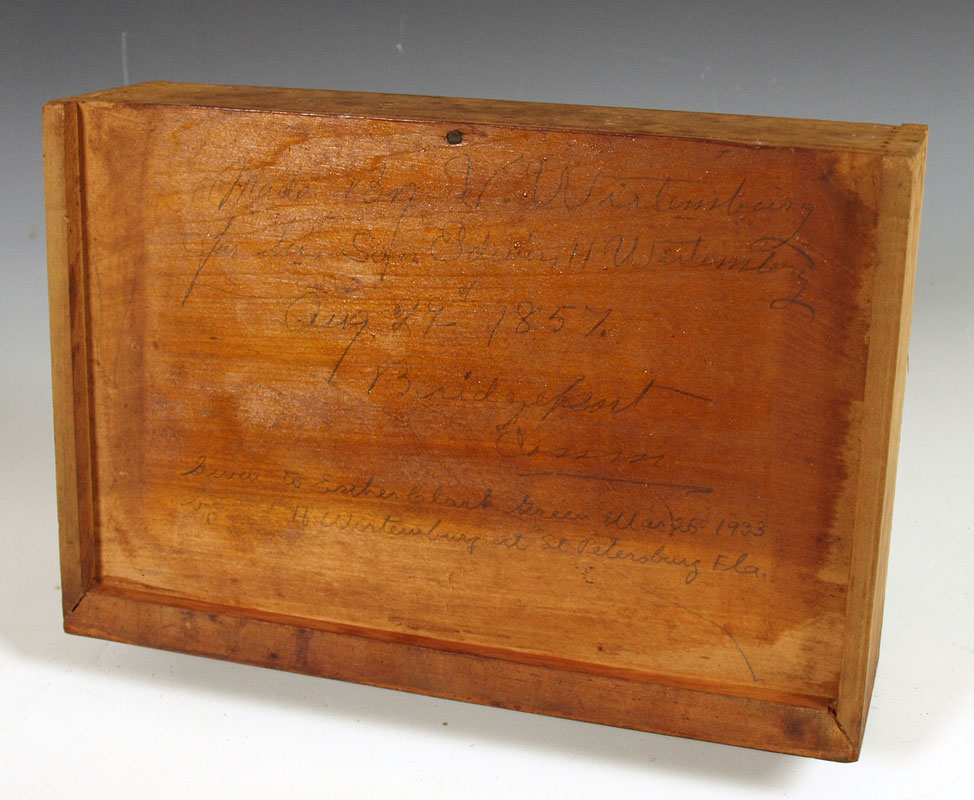 Made By W. Wirtemburg
for his H Wirtemburg
Aug. 29 1857.
Bridgeport
Conn
Given to Esther Clark Green 1933
H. Wirtemburg at St Petersburg Fla.